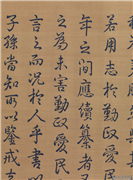 若用志於勤政愛民
年之間應續纂者
之為未害勤政愛民
言之而況於人乎書以
子孫當知所以鑒戒